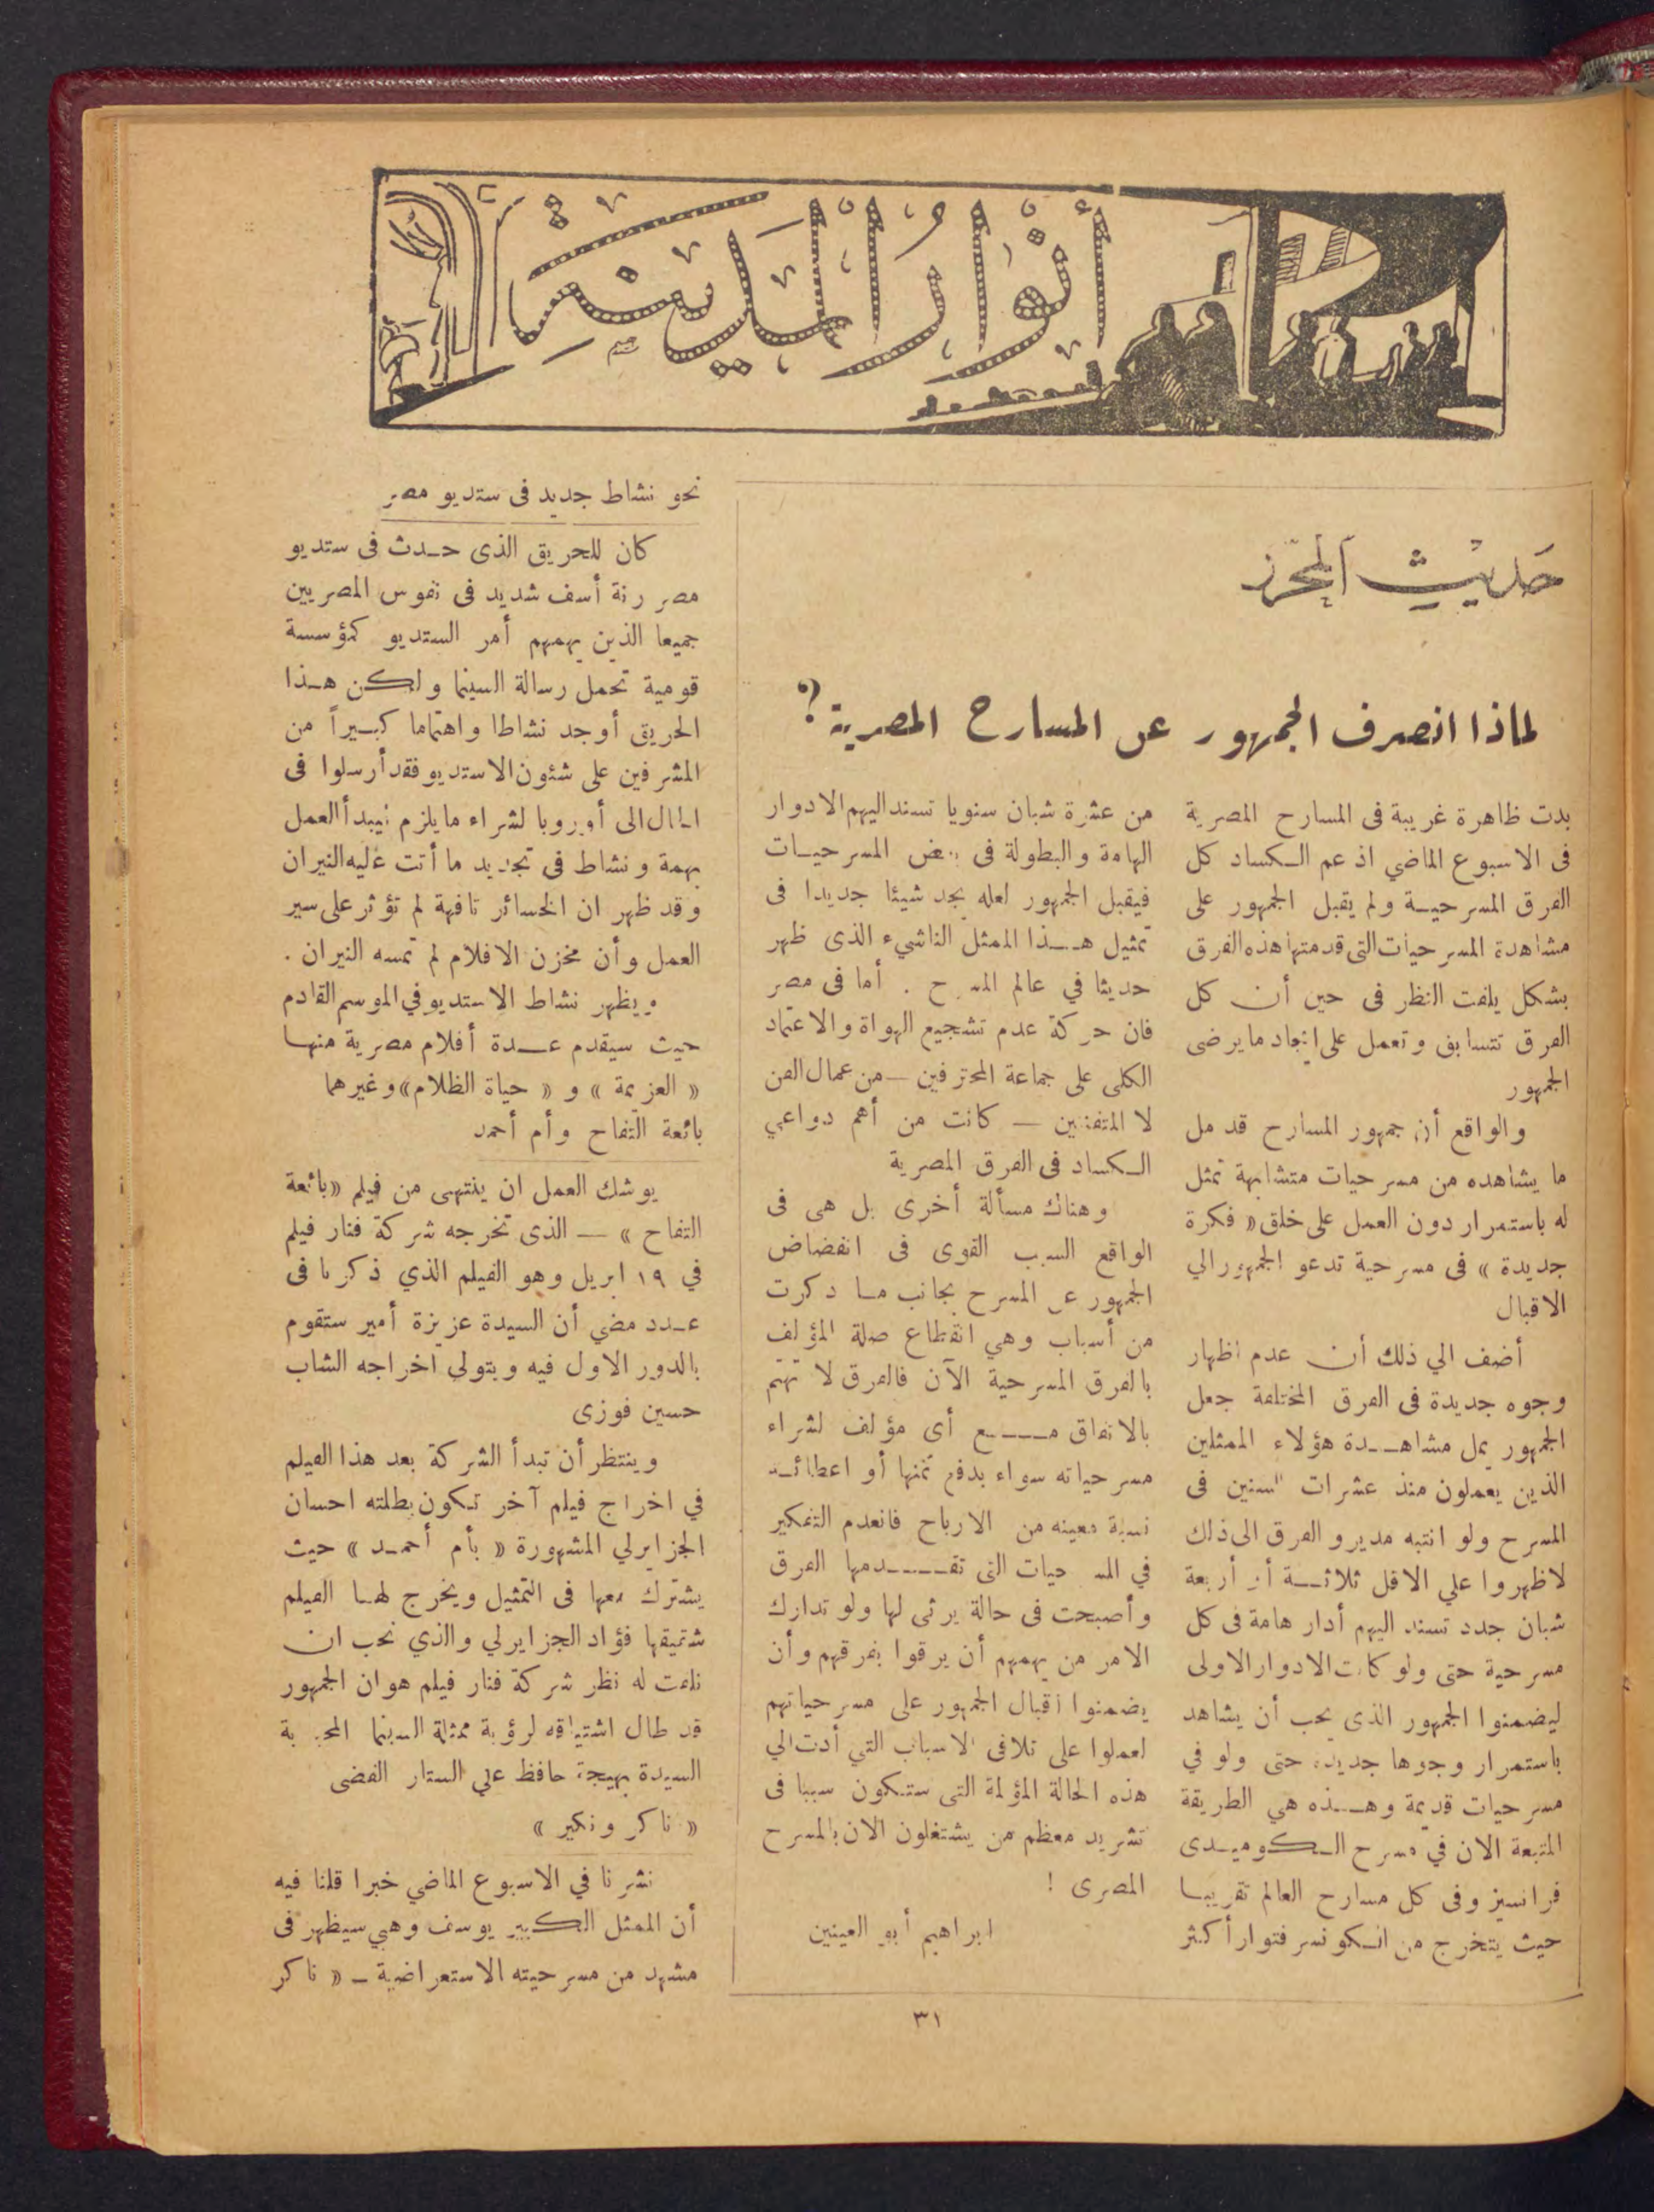 أنوار المدينة
حديث المحرر
لماذا انصرف الجمهور عن المسارح المصرية؟
بدت ظاهرة غريبة فى المسارح المصرية
فى الاسبوع الماضي اذ عم الكساد كل
الفرق المسرحية ولم يقبل الجمهور على
مشاهدة المسرحيات التى قدمتها هذه الفرق
بشكل يلفت النظر فى حين أن كل
الفرق تتسابق وتعمل على ايجاد ما يرضى
الجمهور
والواقع أن جمهور المسارح قد مل
ما يشاهده من مسرحيات متشابهة تمثل
له باستمرار دون العمل على خلق « فكرة
جديدة » فى مسرحية تدعو الجمهور الي
الاقبال
أضف الي ذلك أن عدم اظهار
وجوه جديدة فى الفرق المختلفة جعل
الجمهور يمل مشاهدة هؤلاء الممثلين
الذين يعملون منذ عشرات السنين فى
المسرح ولو انتبه مديرو الفرق الى ذلك
لاظهروا علي الاقل ثلاثة أو أربعة
شبان جدد تسند اليهم أدار هامة فى كل
مسرحية حتى ولو كانت الادوار الاولى
ليضمنوا الجمهور الذى يحب أن يشاهد
باستمرار وجوها جديدة حتى ولو في
مسرحيات قديمة وهذه هي الطريقة
المتبعة الان في مسرح الكوميدى
فرانسيز وفى كل مسارح العالم تقريبا
حيث يتخرج من الكونسرفتوار أكثر
من عشرة شبان سنويا تسند اليهم الادوار
الهامة والبطولة فى بعض المسرحيات
فيقبل الجمهور لعله يجد شيئا جديدا فى
تمثيل هذا الممثل الناشيء الذى ظهر
حديثا في عالم المسرح . أما فى مصر
فان حركة عدم تشجيع الهواة والاعتماد
الكلى على جماعة المحترفين — من عمال الفن
لا المتفننين — كانت من أهم دواعي
الكساد فى الفرق المصرية
وهناك مسألة أخرى بل هى فى
الواقع السبب القوى فى انفضاض
الجمهور عن المسرح بجانب ما ذكرت
من أسباب وهي انقطاع صلة المؤلف
بالفرق المسرحية الآن فالفرق لا تهتم
بالاتفاق مع أى مؤلف لشراء
مسرحياته سواء بدفع ثمنها أو اعطائه
نسبة معينه من الارباح فانعدم التفكير
في المسرحيات التى تقدمها الفرق
وأصبحت فى حالة يرثى لها ولو تدارك
الامر من يهمهم أن يرقوا بفرقهم وأن
يضمنوا اقبال الجمهور على مسرحياتهم
لعملوا على تلافى الاسباب التي أدت الي
هذه الحالة المؤلمة التى ستكون سببا فى
تشريد معظم من يشتغلون الان بالمسرح
المصرى !
ابراهيم أبو العينين
نحو نشاط جديد فى ستديو مصر
كان للحريق الذى حدث فى ستديو
مصر رنة أسف شديد فى نفوس المصريين
جميعا الذين يهمهم أمر الستديو كمؤسسة
قومية تحمل رسالة السينما ولكن هذا
الحريق أوجد نشاطا واهتماما كبيراً من
المشرفين على شئون الاستديو فقد أرسلوا فى
الحال الى أوروبا لشراء ما يلزم ليبدأ العمل
بهمة ونشاط فى تجديد ما أتت عليه النيران
وقد ظهر ان الخسائر تافهة لم تؤثر على سير
العمل وأن مخزن الافلام لم تمسه النيران .
ويظهر نشاط الاستديو في الموسم القادم
حيث سيقدم عدة أفلام مصرية منها
« العزيمة » و « حياة الظلام » وغيرهما
بائعة التفاح وأم أحمد
يوشك العمل ان ينتهى من فيلم « بائعة
التفاح » — الذى تخرجه شركة فنار فيلم
في ١٩ ابريل وهو الفيلم الذي ذكرنا فى
عدد مضي أن السيدة عزيزة أمير ستقوم
بالدور الاول فيه ويتولى اخراجه الشاب
حسين فوزى
وينتظر أن تبدأ الشركة بعد هذا الفيلم
في اخراج فيلم آخر تكون بطلته احسان
الجزايرلي المشهورة « بأم أحمد » حيث
يشترك معها فى التمثيل ويخرج لها الفيلم
شقيقها فؤاد الجزايرلي والذي نحب ان
نلفت له نظر شركة فنار فيلم هو ان الجمهور
قد طال اشتياقه لرؤية ممثلة السينما المحبوبة
السيدة بهيجة حافظ علي الستار الفضى
« ناكر ونكير »
نشرنا في الاسبوع الماضي خبرا قلنا فيه
أن الممثل الكبير يوسف وهبي سيظهر فى
مشهد من مسرحيته الاستعراضية – « ناكر
٣١